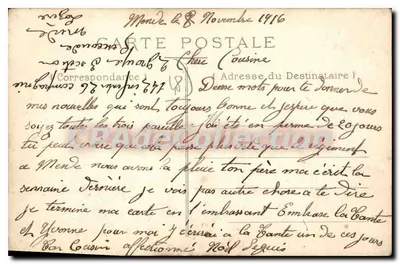 Mende le 8 Novembre 1916
CARTE POSTALE
Chère Cousine
Correspondance
Adresse du Destinataire
Deux mots pour te donner de
mes nouvelles qui sont toujours bonne et j'espère que vous
soyez toute les trois pareille J'ai été en perme de 20 jours
tu peut croire que
a Mende nous avons la pluie ton père ma écrit la
semaine dernière je vois pas autre chose a te dire
je termine ma carte en t'embrassant Embrase la tante
et Yvonne pour moi j'écrirai a la tante un de ces jours
Ton Cousin affectionné Noël
142 infrie 26 compagnie